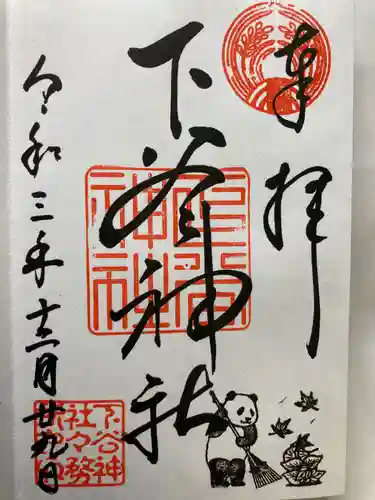 奉拝
下谷神社
令和三年十二月廿九日
下谷神社
下谷神社々務所之印